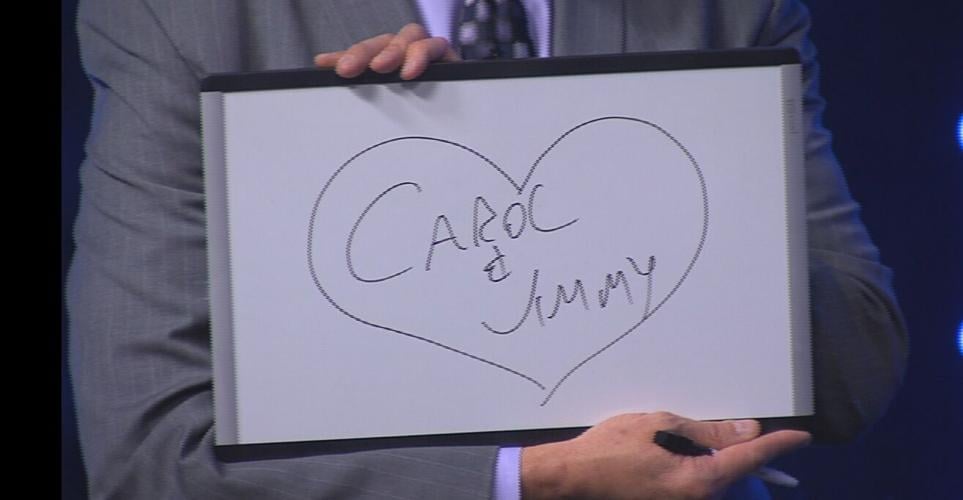 CAROL
&
JIMMY